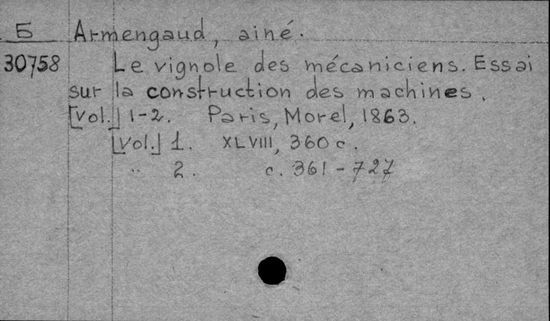 Б Armengaud, ainé.
30758 Le vignole des mécaniciens. Essai
sur la construction des machines.
[Vol.] 1-2. Paris, Morel, 1863.
[Vol.] 1. XLVIII, 360 c.
" 2. c. 361-727